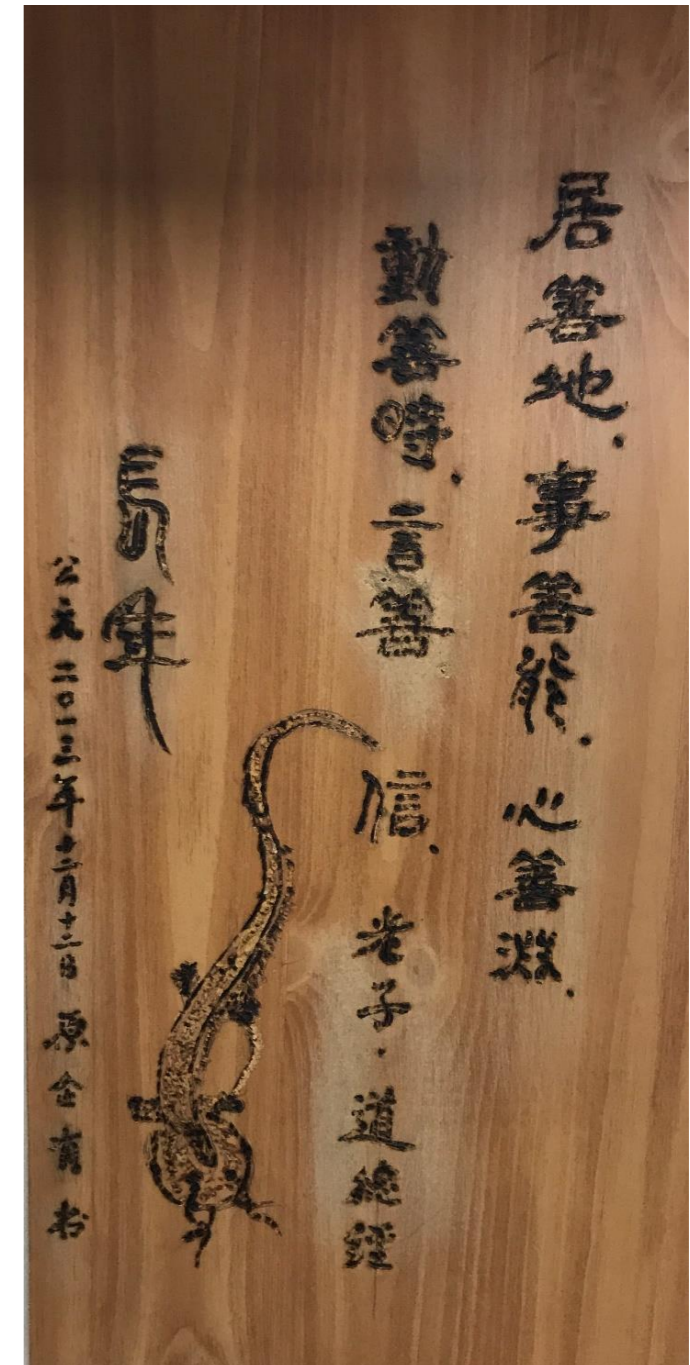 居善地.事善能.心善淵.
動善時.言善信.老子·道德經
長年
公元二〇一三年十二月十二日 原 书